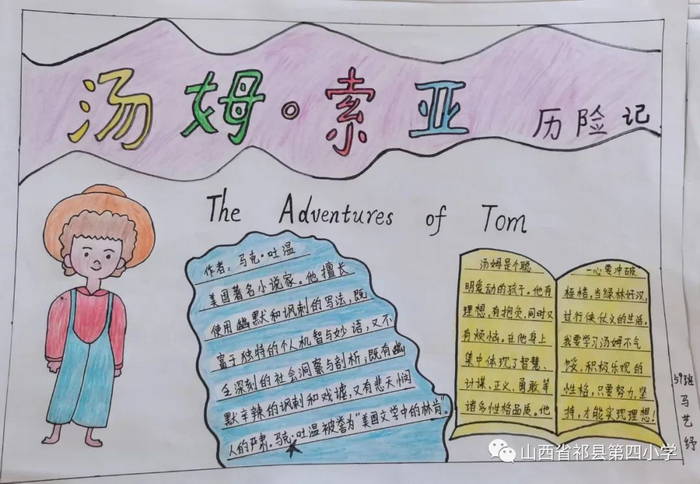 汤姆·索亚 历险记
The Adventures of Tom
作者：马克·吐温
美国著名小说家。他擅长
使用幽默和讽刺的写法，既
富于独特的个人机智与妙语，又不
乏深刻的社会洞察与剖析；既有幽
默辛辣的讽刺和戏谑，又有悲天悯
人的严肃。马克·吐温被誉为“美国文学中的林肯”
汤姆是个聪
明爱动的孩子，他有
理想，有抱负，同时又
有烦恼，在他身上
集中体现了智慧、
计谋、正义、勇敢等
诸多性格品质。他
一心要冲破
桎梏，当绿林好汉，
过行侠仗义的生活。
我要学习汤姆不气
馁，积极乐观的
性格，只要努力，坚
持，才能实现理想。
59班
马艺纾
山西省祁县第四小学